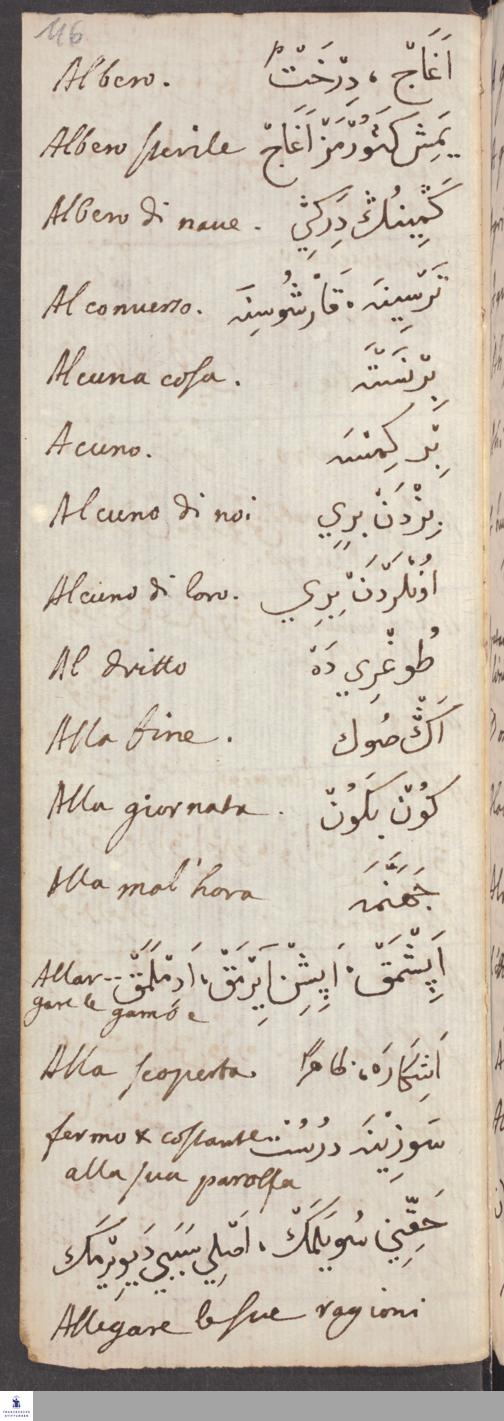 116
Albero. اَغَاجْ ، دِرَخْتْ
Albero sterile يَمِشْ كَتُورْمَزْ اَغَاجْ
Albero di naue. كَمِينُكْ دِرَكِي
Al conuerso. تَرْسِينَه ، قَارْشُوسِنَه
Alcuna cosa. بِرْنَسْنَه
Acuno. بِر كِمْسَه
Alcuno di noi بِزْدَنْ بِرِي
Alcuno di loro. اُونْلَرْدَنْ بِرِي
Al dritto طُوغْرِي دَه
Alla fine. اَكْ صُوك
Alla giornata. كُونْ بَكُونْ
Alla mal'hora جَهَنَّمَه
Allar- اَپِشْمَقْ ، اَپِشِنْ اَيِرْمَقْ ، اَدِمْلَمَقْ
gare le gambe
Alla scoperta. اَشِكَارَه ، ظاهرًا
fermo & costante سَوزِينَه دُرُسْت
alla sua parolla
حَقِّنِي سُويْلَمَكْ ، اَصْلِي سَبَبِي دَيوِيرْمَك
Allegare le sue ragioni